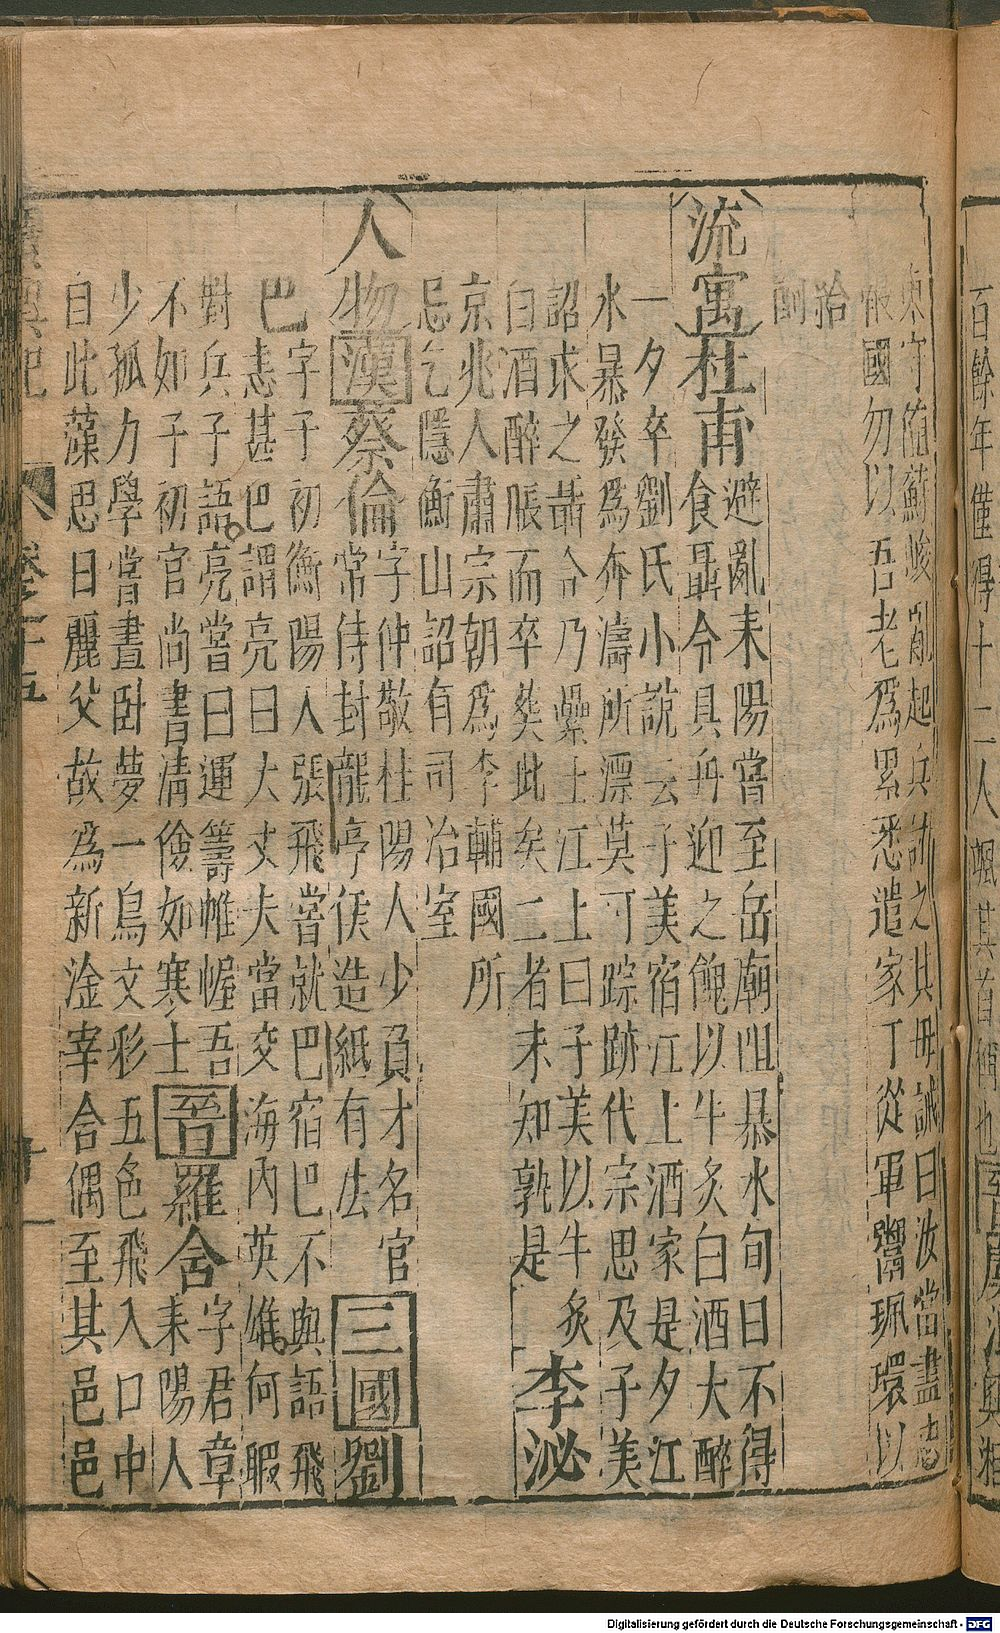 百餘年僅得十二人颯其首稱也
東守随蘇峻亂起兵討之其母誡曰汝當盡忠
報國勿以吾老為累悉遣家丁從軍鬻珮環以
給
餉
流寓杜甫
避亂耒陽嘗至岳廟阻暴水旬日不得
食聶令具舟迎之餽以牛炙白酒大醉
一夕卒劉氏小說云子美宿江上酒家是夕江
水暴發為奔濤所漂莫可踪跡代宗思及子美
詔求之聶令乃壘土江上曰子美以牛炙
白酒醉脹而卒葬此矣二者未知孰是
李泌
京兆人肅宗朝為李輔國所
忌乞隱衡山詔有司治室
人物漢蔡倫
字仲敬桂陽人少負才名官
常侍封龍亭侯造紙有法
三國劉
巴
字子初衡陽人張飛嘗就巴宿巴不與語飛
恚甚巴謂亮曰大丈夫當交海內英雄何暇
對兵子語亮嘗曰運籌帷幄吾
不如子初官尚書清儉如寒士
晉羅含
字君章
耒陽人
少孤力學嘗晝臥夢一鳥文彩五色飛入口中
自此藻思日麗父故為新淦宰含偶至其邑邑
廣輿記 卷之十五 十一
Digitalisierung gefördert durch die Deutsche Forschungsgemeinschaft - DFG